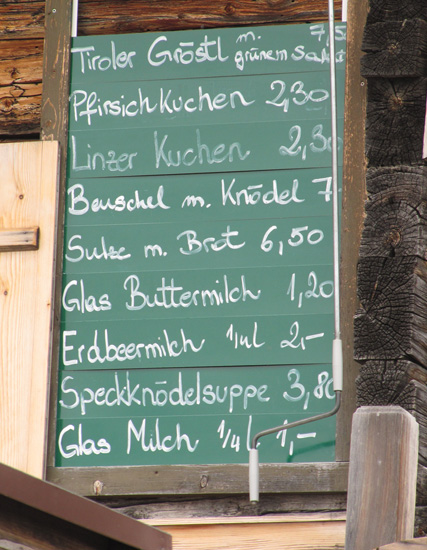 Tiroler Gröstl m. grünem Salat 7,5
Pfirsichkuchen 2,30
Linzer Kuchen 2,30
Beuschel m. Knödel 7
Sulze m. Brot 6,50
Glas Buttermilch 1,20
Erdbeermilch 1/4l 2,-
Speckknödelsuppe 3,80
Glas Milch 1/4l 1,-